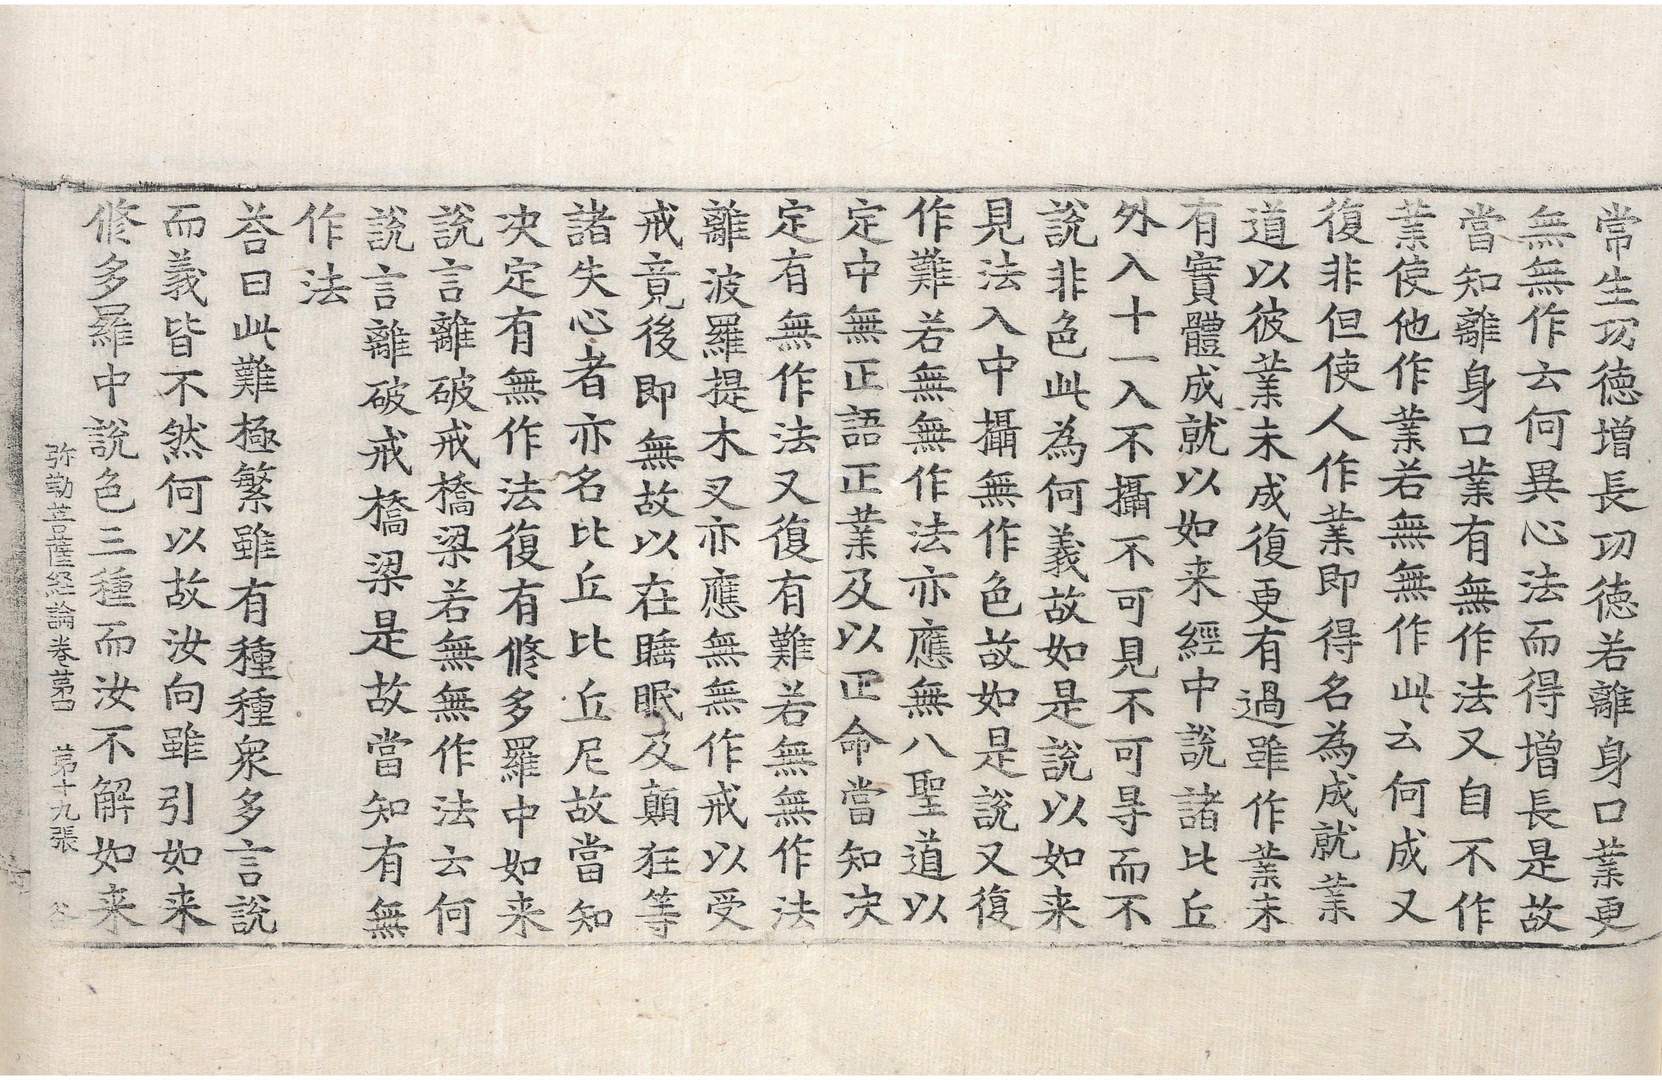 常生功德增長功德若離身口業更
無無作云何異心法而得增長是故
當知離身口業有無作法又自不作
業使他作業若無無作此云何成又
復非但使人作業即得名為成就業
道以彼業未成復更有過雖作業未
有實體成就以如来經中說諸比丘
外入十一入不攝不可見不可㝵而不
說非色此為何義故如是說以如来
見法入中攝無作色故如是說又復
作難若無無作法亦應無八聖道以
定中無正語正業及以正命當知决
定有無作法又復有難若無無作法
離波羅提木叉亦應無無作戒以受
戒竟後即無故以在睡眠及顛狂等
諸失心者亦名比丘比丘尼故當知
决定有無作法復有修多羅中如来
說言離破戒橋梁若無無作法云何
說言離破戒橋梁是故當知有無
作法
荅曰此難極繁雖有種種衆多言說
而義皆不然何以故汝向雖引如来
修多羅中說色三種而汝不解如来
弥勒菩薩経論卷苐四 苐十九張 谷